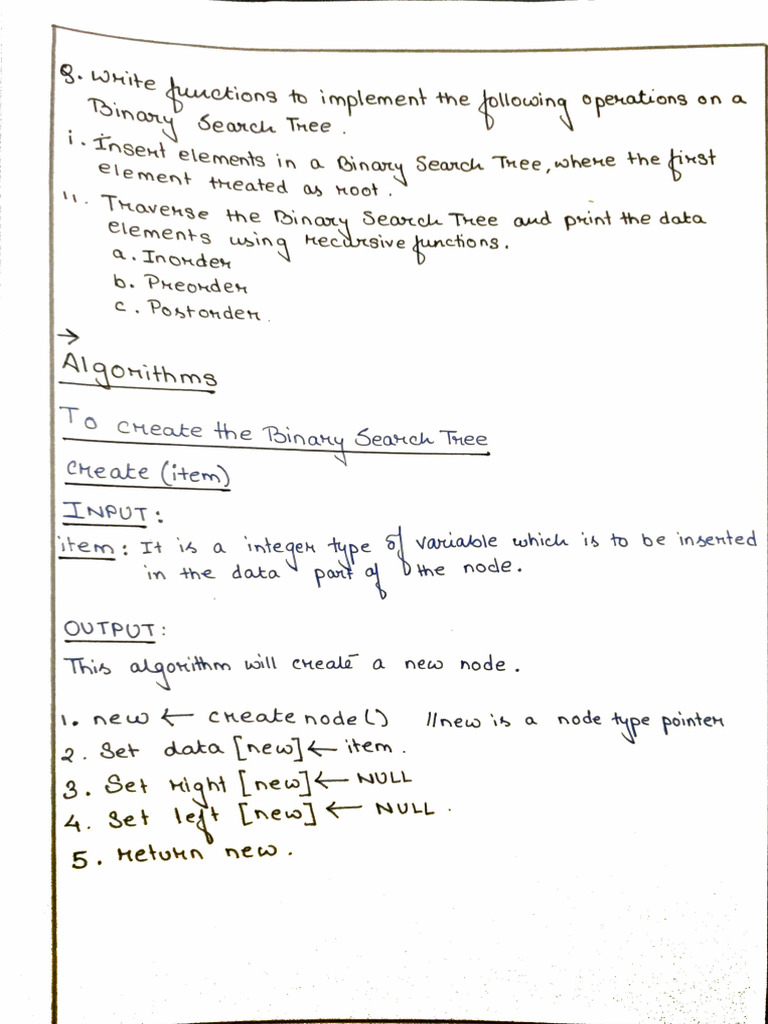 Q. Write functions to implement the following operations on a
Binary Search Tree.
i. Insert elements in a Binary Search Tree, where the first
element treated as root.
ii. Traverse the Binary Search Tree and print the data
elements using recursive functions.
a. Inorder
b. Preorder
c. Postorder.
→
Algorithms
To create the Binary Search Tree
create (item)
INPUT:
item: It is a integer type of variable which is to be inserted
in the data part of the node.
OUTPUT:
This algorithm will create a new node.
1. new ← createnode() //new is a node type pointer
2. Set data [new] ← item.
3. Set right [new] ← NULL
4. Set left [new] ← NULL.
5. return new.